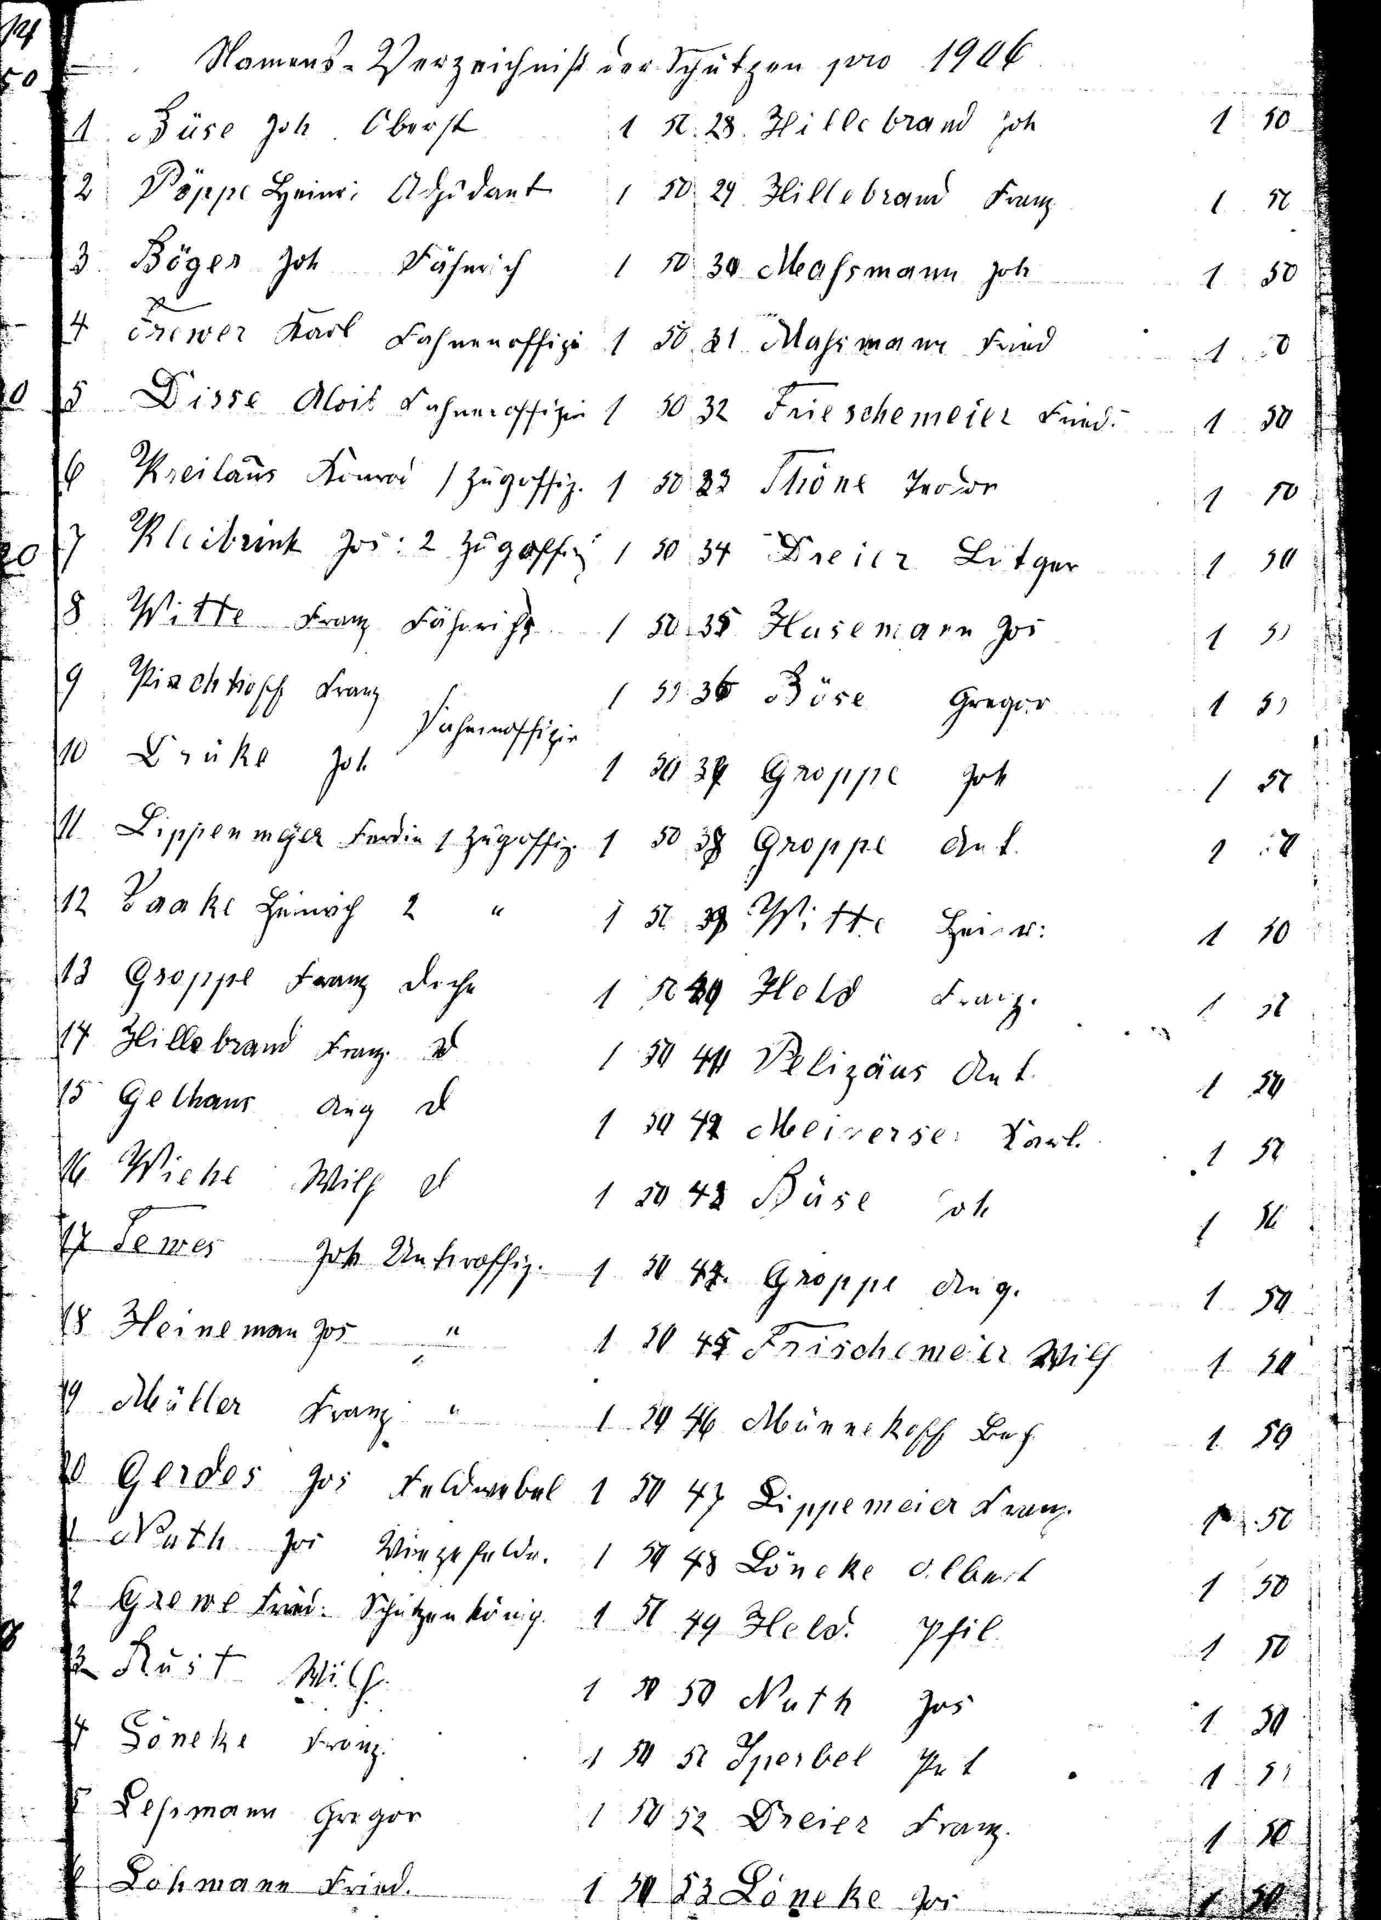 14
50
Namens-Verzeichniß der Schützen pro 1906
1 Büse Joh. Oberst 1 50 28 Hillebrand Joh 1 50
2 Pöppe Heinr. Adjüdant 1 50 29 Hillebrand Franz 1 50
3 Böger Joh Fähnrich 1 50 30 Maßmann Joh 1 50
4 Trewer Karl Fahnenoffizi 1 50 31 Maßmann Fried 1 50
0
5 Disse Alois Fahnenoffizir 1 50 32 Frieschemeier Fried. 1 50
6 Kreilaus Konrad 1 Zügoffiz. 1 50 33 Thöne Teodor 1 50
20
7 Kleibrink Jos: 2 Zügoffiz 1 50 34 Dreier Lütger 1 50
8 Witte Franz Fähnrich 1 50 35 Husemann Jos 1 50
9 Pischkoff Franz 1 50 36 Böse Gregor 1 50
Fahnenoffizir
10 Drüke Joh 1 50 37 Groppe Joh 1 50
11 Lippenmeyer Ferdin 1 Zügoffiz. 1 50 38 Groppe Ant. 1 50
12 Vaake Heinrich 2 " 1 50 39 Witte Heinr: 1 50
13 Groppe Franz 1 50 40 Held Franz. 1 50
14 Hillebrand Franz. d 1 50 41 Pelizäus Ant. 1 50
15 Gelhaus Aug d 1 50 42 Meiwerse Karl. 1 50
16 Wiehe Wilh d 1 50 43 Büse Joh 1 50
17 Tewes Joh Unteroffiz. 1 50 44. Groppe Aug. 1 50
18 Heineman Jos " 1 50 45 Frischemeier Wilh 1 50
19 Müller Franz " 1 50 46 Münnekoff 1 50
20 Gerdes Jos Feldwebel 1 50 47 Lippemeier Franz. 1 50
1 Nuth Jos Vizefeldw. 1 50 48 Löneke Albert 1 50
2 Grewe Fried: Schützenkönig. 1 50 49 Held. Phil 1 50
3 Rust Wilh. 1 50 50 Nuth Jos 1 50
4 Löneke Franz. 1 50 51 Sperbel 1 50
5 Leßmann Gregor 1 50 52 Dreier Franz. 1 50
6 Lohmann Fried. 1 50 53 Löneke Jos 1 50